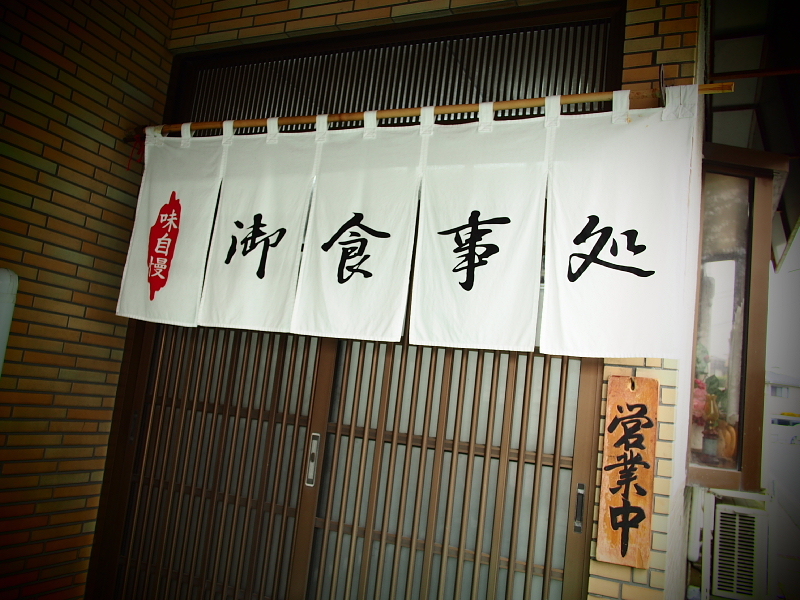 味自慢
御食事処
営業中